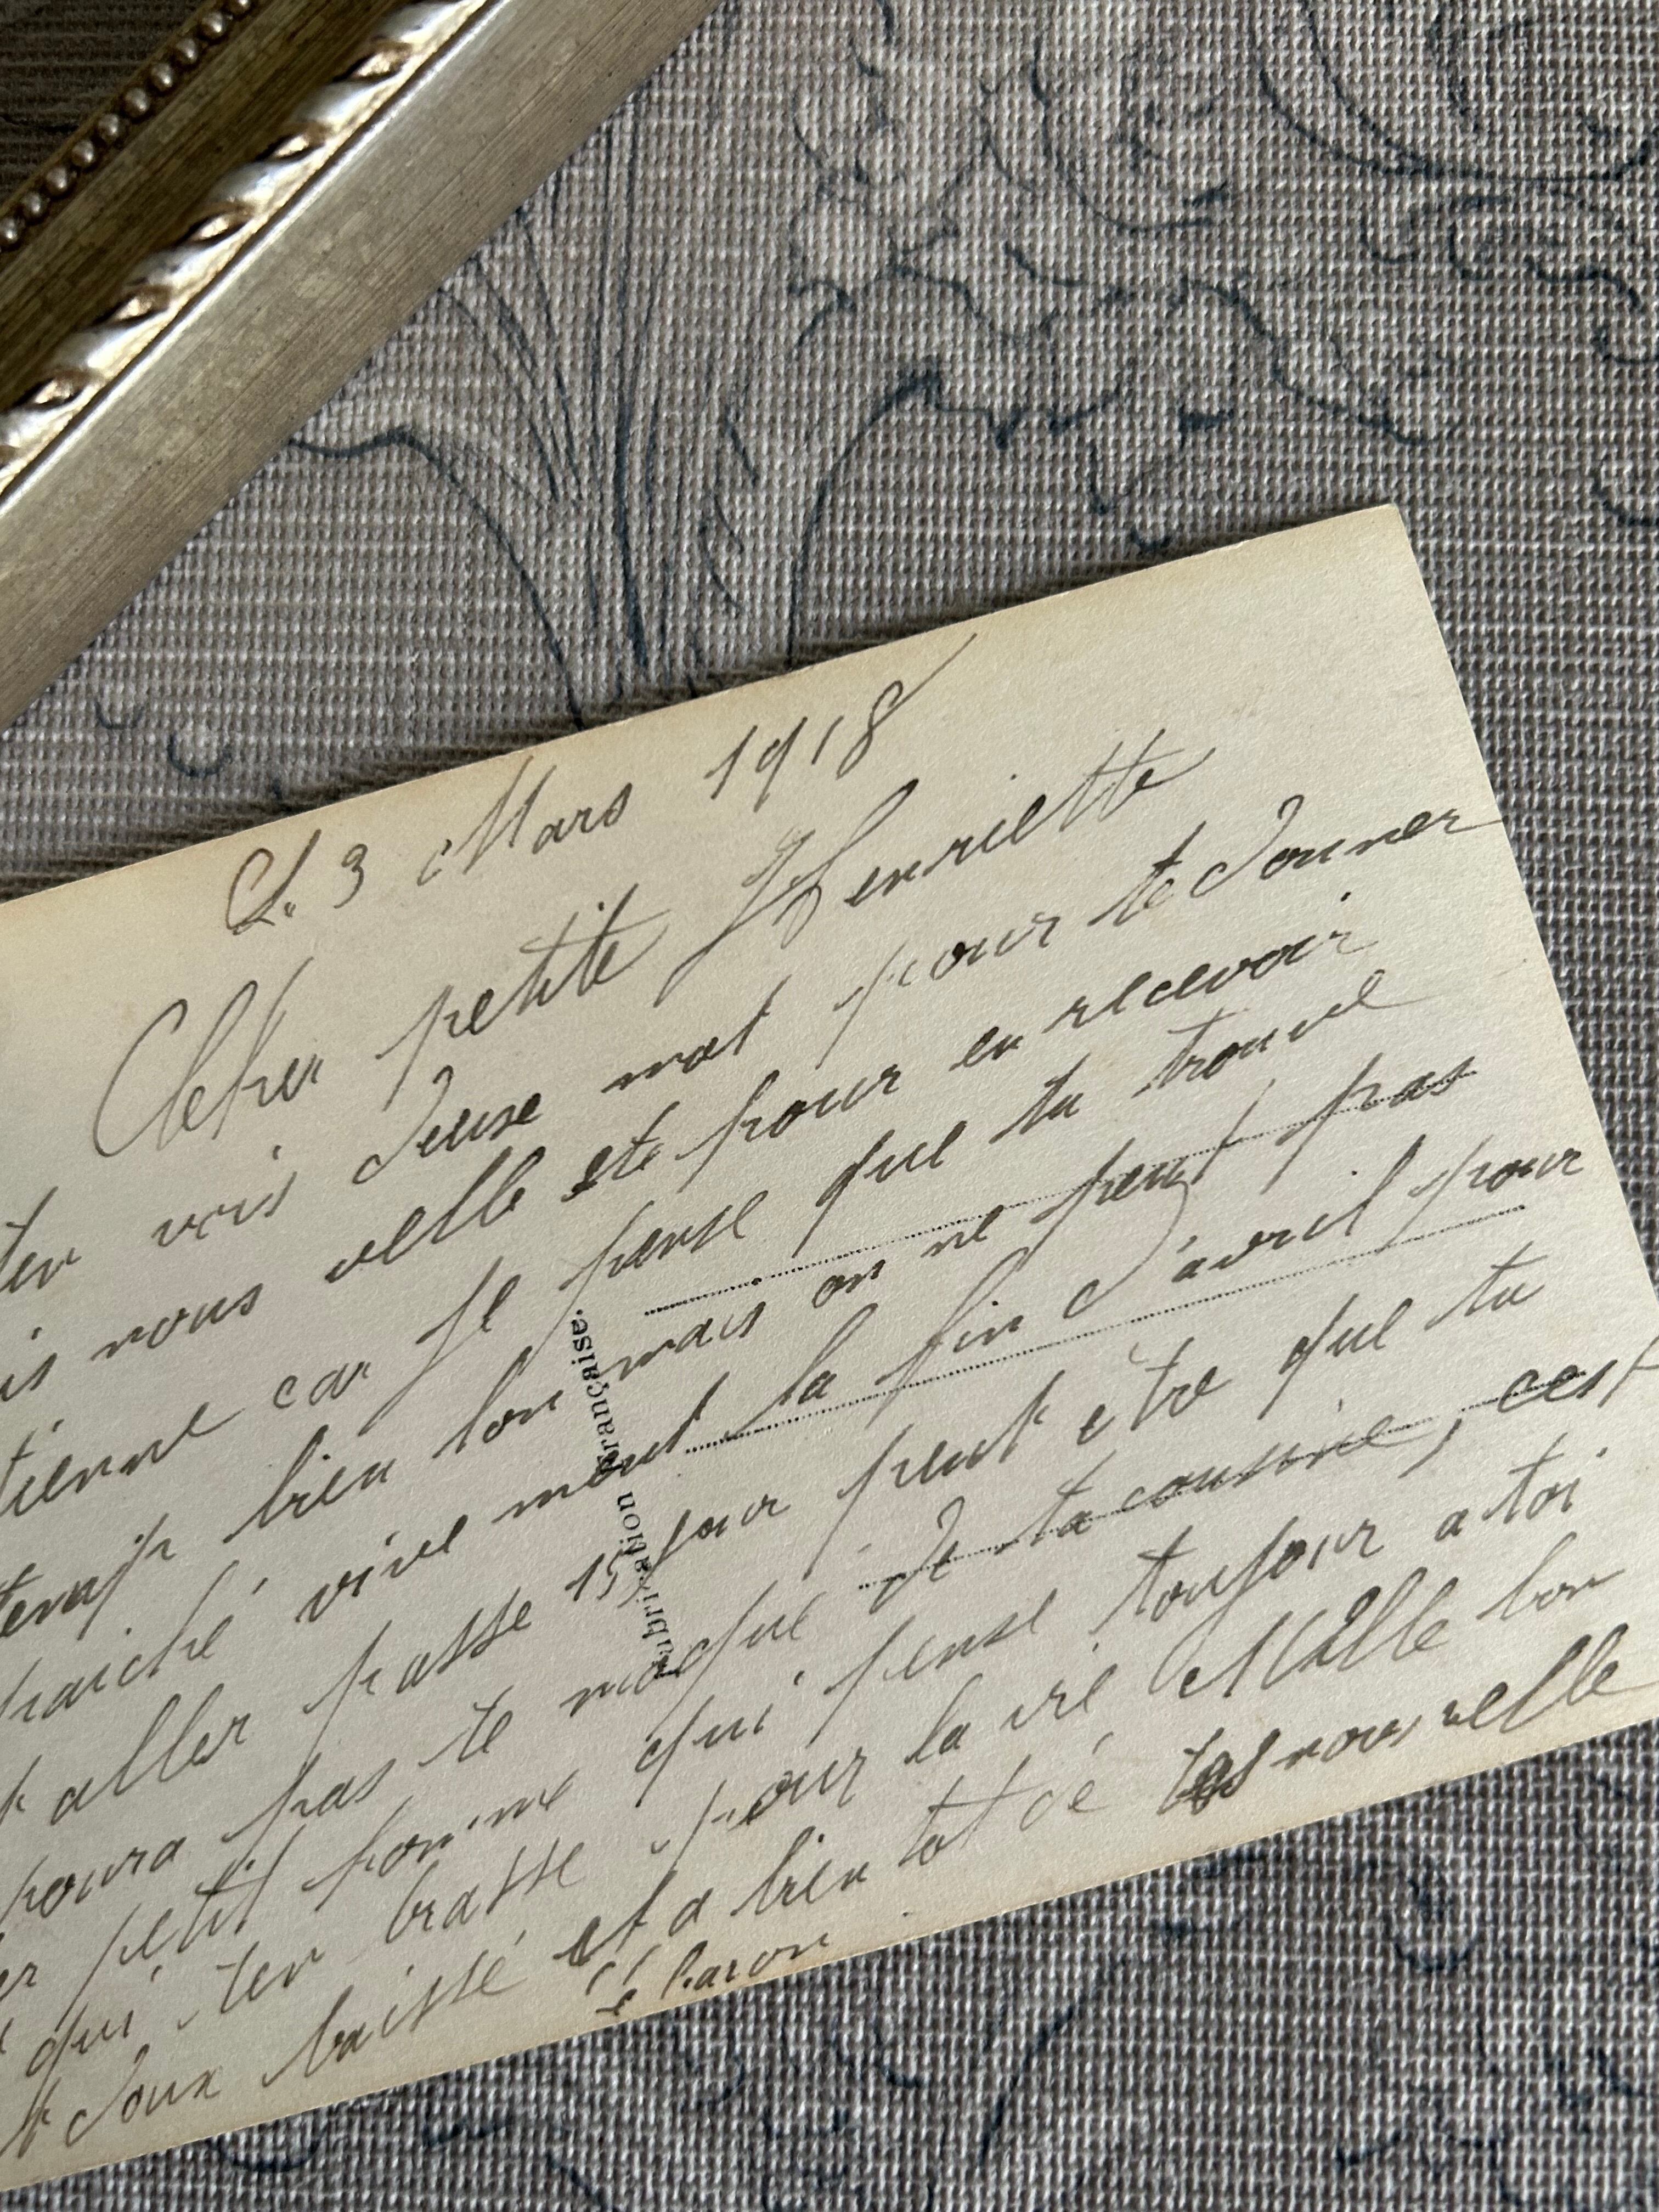 Le 3 Mars 1918
Cher petite Henriette
ten vois deuse mot pour te donner
is nous velle ete pour en recevoir
tienne car je pense que tu trouve
temp bien lon mais on ne peut pas
vive ment la fin d'avril pour
t aller passe 15 jour peut être que tu
poura pas te moque de ta cousine, cest
er petit homme qui pense toujour a toi
qui ten brasse pour la vie Mille bon
t doux baisse et a bien tot dé tes nous velle
le baron
Fabrication Française.